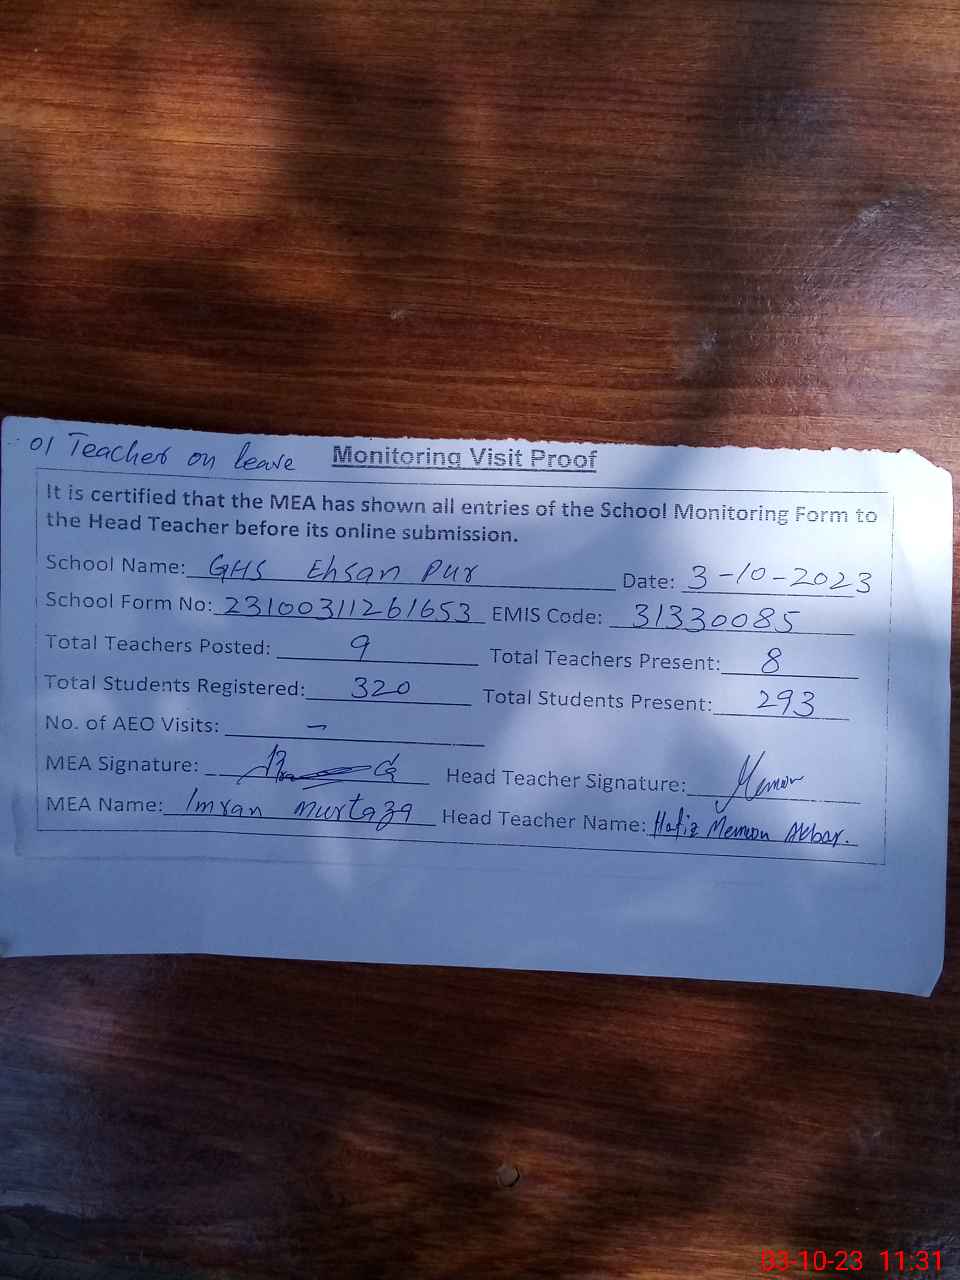 01 Teacher on leave Monitoring Visit Proof
It is certified that the MEA has shown all entries of the School Monitoring Form to
the Head Teacher before its online submission.
School Name: GHS Ehsan Pur Date: 3-10-2023
School Form No: 23100311261653 EMIS Code: 31330085
Total Teachers Posted: 9 Total Teachers Present: 8
Total Students Registered: 320 Total Students Present: 293
No. of AEO Visits: –
MEA Signature: Head Teacher Signature:
MEA Name: Imran Murtaza Head Teacher Name: Hafiz Memoon Akbar.
03-10-23 11:31